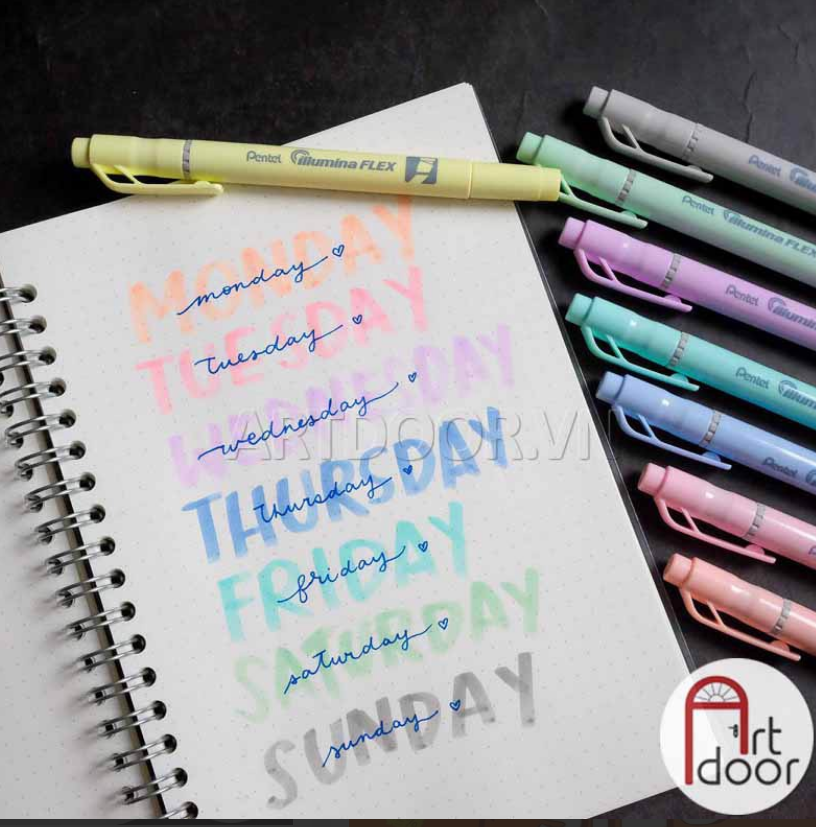 Pentel illumina FLEX
Pentel
Pentel illumina FLEX
Pentel
Pentel
Pentel
MONDAY
monday
TUESDAY
tuesday
WEDNESDAY
wednesday
ARTDOOR.VN
THURSDAY
thursday
FRIDAY
friday
SATURDAY
saturday
SUNDAY
sunday
Art
door